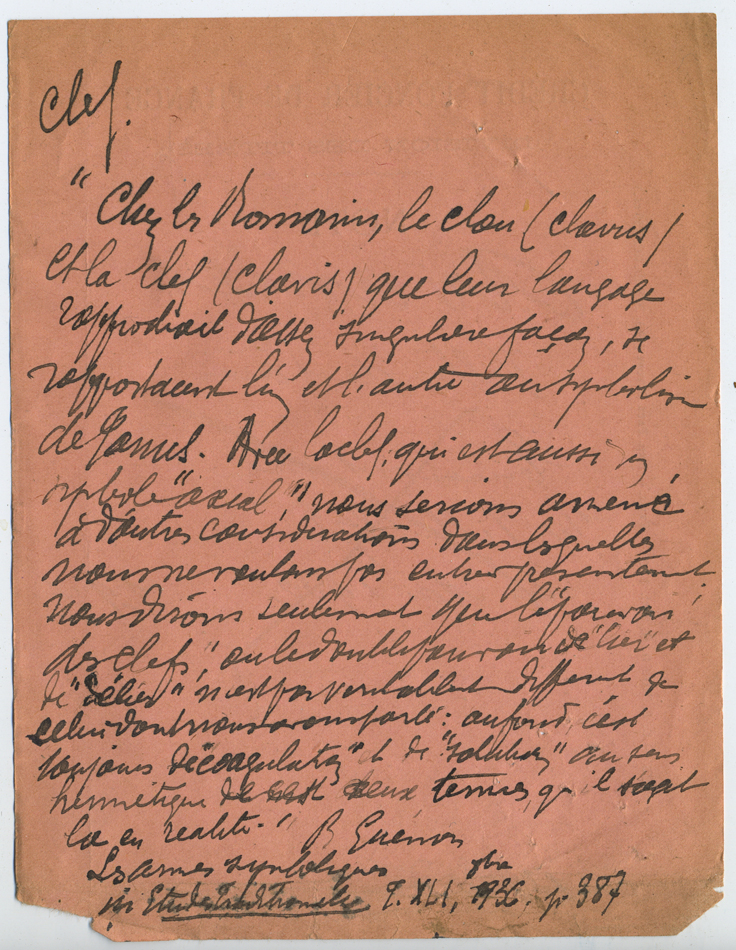 Clef.
"Chez les Romains, le clou (clavus)
et la clef (clavis) que leur langage
rapprochait d'assez singulière façon, se
rapportaient l'un et l'autre au symbolisme
de Janus. Avec la clef, qui est aussi un
symbole "axial", nous serions amené
à d'autres considérations dans lesquelles
nous ne voulons pas entrer présentement.
Nous dirons seulement que le "pouvoir
des clefs", ou le double pouvoir de "lier" et
de "délier", n'est pas véritablement différent de
celui dont nous avons parlé : au fond, c'est
toujours de "coagulation" et de "solution" au sens
hermétique de ces deux termes, qu'il s'agit
là en réalité." R Guénon
Les armes symboliques
in Etudes Traditionnelles T. XLI, 8bre 1936. p. 387